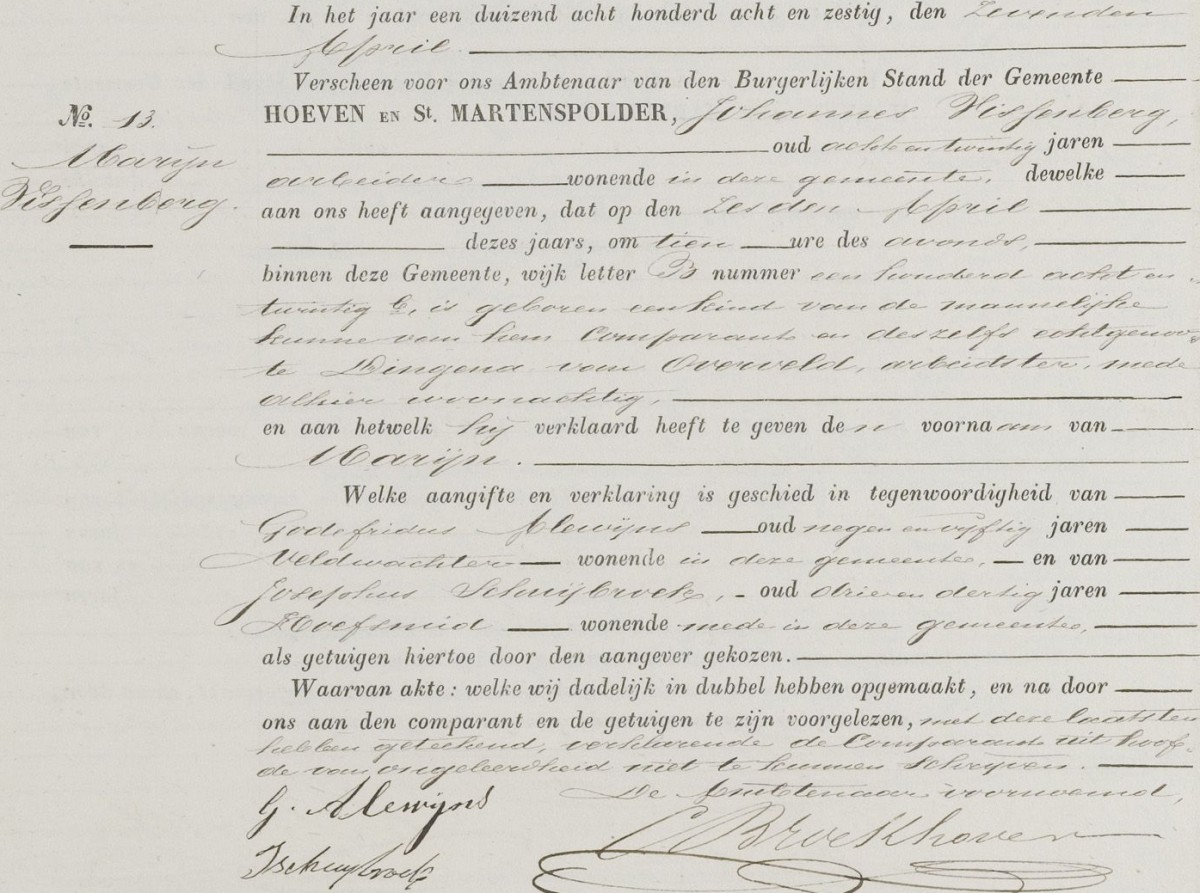 In het jaar een duizend acht honderd acht en zestig, den Zevenden
April
Verscheen voor ons Ambtenaar van den Burgerlijken Stand der Gemeente
HOEVEN EN St. MARTENSPOLDER, Johannes Vissenberg,
No. 13.
Marijn
Vissenberg.
oud acht en twintig jaren
arbeider wonende in deze gemeente, dewelke
aan ons heeft aangegeven, dat op den Zesden April
dezes jaars, om tien ure des avonds,
binnen deze Gemeente, wijk letter B nummer een honderd acht en
twintig is geboren een kind van de mannelijke
kunne van hem Comparant en deszelfs echtgenoo-
te Dingena van Overveld, arbeidster, mede
alhier woonachtig,
en aan hetwelk hij verklaard heeft te geven den voornaam van
Marijn.
Welke aangifte en verklaring is geschied in tegenwoordigheid van
Godefridus Alewijns oud negen en vijftig jaren
Veldwachter wonende in deze gemeente, en van
Josephus Schuijbroek, oud drie en dertig jaren
Hoefsmid wonende mede in deze gemeente,
als getuigen hiertoe door den aangever gekozen.
Waarvan akte: welke wij dadelijk in dubbel hebben opgemaakt, en na door
ons aan den comparant en de getuigen te zijn voorgelezen, met deze laatsten
hebben geteekend, verklarende de Comparant uit hoof-
de van ongeleerdheid niet te kunnen schrijven.
De Ambtenaar voornoemd,
G. Alewijns
C Broekhoven
J schuybroek